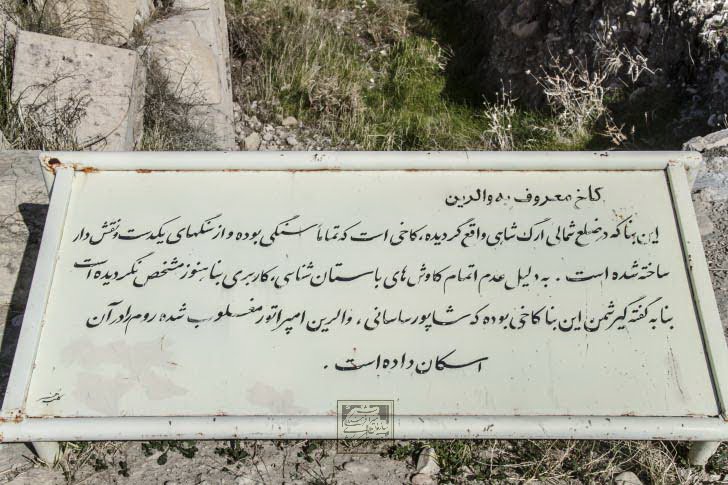 کاخ معروف به والرین
این بنا که در ضلع شمالی ارگ شاهی واقع گردیده، کاخی است که تماماً سنگی بوده و از سنگهای یکدست و نقش دار
ساخته شده است. به دلیل عدم اتمام کاوش های باستان شناسی، کاربری بنا هنوز مشخص نگردیده است
بنا به گفته گیرشمن این بنا کاخی بوده که شاپور ساسانی، والرین امپراتور مغلوب شده روم را در آن
اسکان داده است.